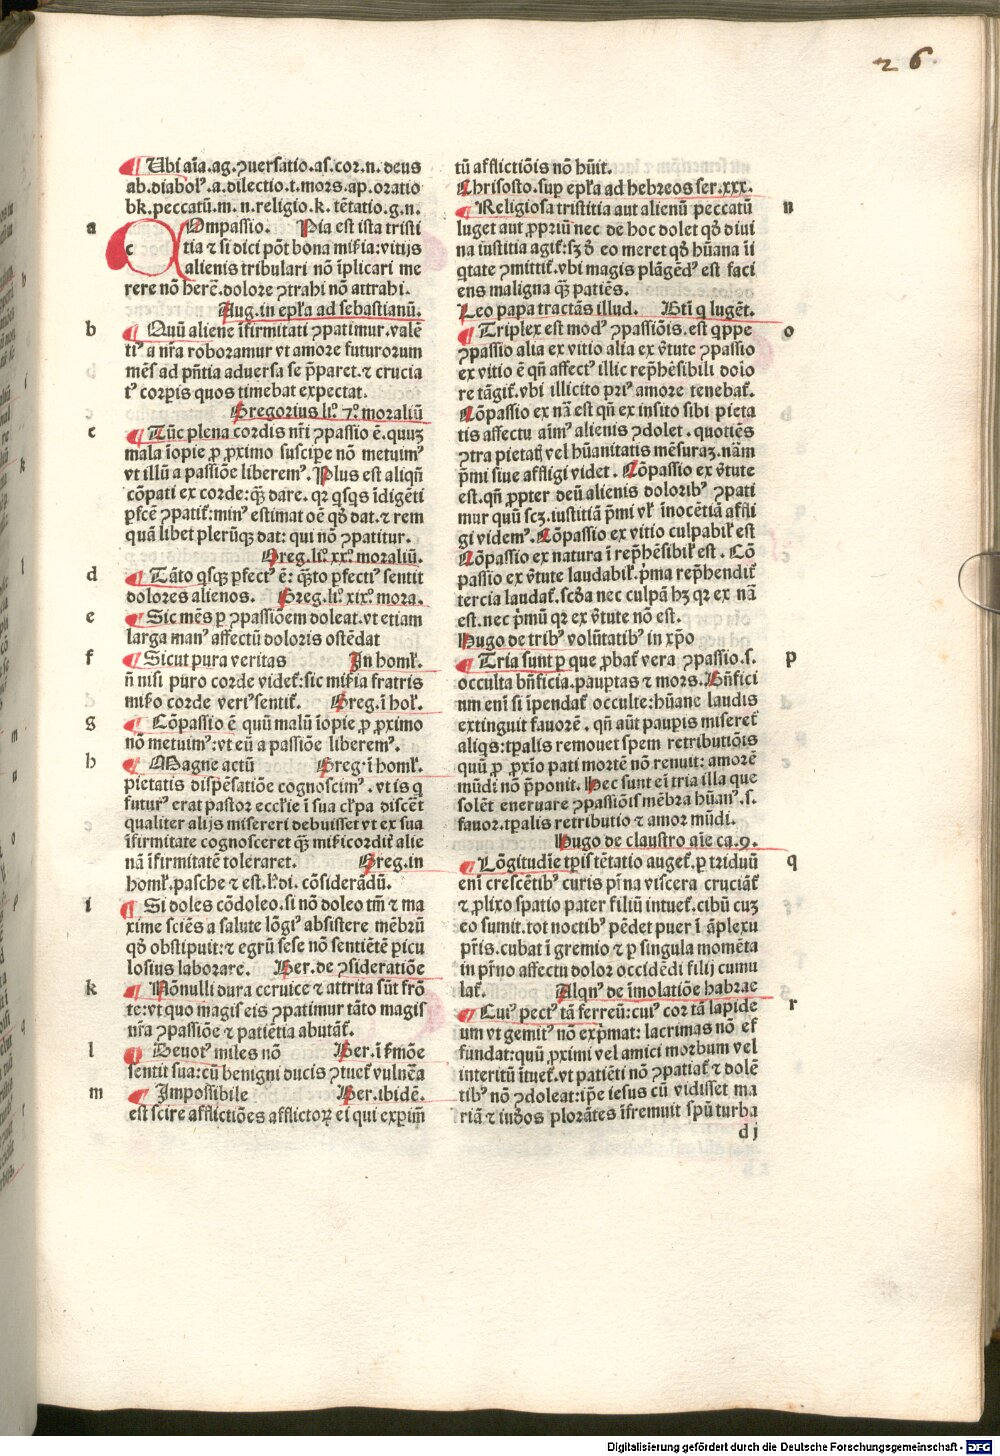 26.
¶ Ubi aīa.ag.ꝯuersatio.as.cor.n.deus
ab.diabolꝰ.a.dilectio.t.mors.ap.oratio
bk.peccatū.m.n.religio.k.tētatio.g.n.
a
c Ompassio. Pia est ista tristi
tia ⁊ si dici pōt bona miẜia: vitijs
alienis tribulari nō īplicari me
rere nō herē.dolore ꝯtrahi nō attrahi.
Aug.in epła ad sebastianū.
b
¶ Quū aliene īfirmitati ꝯpatimur.valē
tiꝰ a nr̄a roboramur vt amore futurorum
mēs ad pn̄tia aduersa se p̄paret.⁊ crucia
tꝰ corpis quos timebat expectat.
Gregorius liº.7º.moraliū
c
¶ Tūc plena cordis nr̄i ꝯpassio ē.quuꝫ
mala īopie ꝓ ꝓximo suscipe nō metuimꝰ
vt illū a passiōe liberemꝰ. Plus est aliqn̄
cōpati ex corde: qꝫ dare. qꝛ qͥsqͥs īdigēti
ꝑfcē ꝯpatiť: minꝰ estimat oē qď dat.⁊ rem
quā libet plerūqꝫ dat: qui nō ꝯpatitur.
Greg.liº.xxº.moraliū.
d
¶ Tāto qͥsqꝫ ꝑfectꝰ ē: qͣto ꝑfectiꝰ sentit
dolores alienos. Greg.liº.xixº.mora.
e
¶ Sic mēs ꝑ ꝯpassiōem doleat.vt etiam
larga manꝰ affectū doloris ostēdat
f
¶ Sicut pura veritas In homł.
n̄ nisi puro corde videť: sic miẜia fratris
miẜo corde veriꝰ sentiť. Greg.ī hoł.
g
¶ Cōpassio ē quū malū īopie ꝓ ꝓximo
nō metuimꝰ: vt eū a passiōe liberemꝰ.
h
¶ Magne actū Greg.ī homł.
pietatis dispēsatiōe cognoscimꝰ.vt is q
futurꝰ erat pastor eccłie ī sua cłpa discēt
qualiter alijs misereri debuisset vt ex sua
īfirmitate cognosceret qͣꝫ miẜicordiť alie
nā īfirmitatē toleraret. Greg.in
homł.pasche ⁊ est.ł.di.cōsiderādū.
i
¶ Si doles cōdoleo.si nō doleo tm̄ ⁊ ma
xime sciēs a salute lōgiꝰ absistere mēbrū
qď obstipuit: ⁊ egrū sese nō sentiētē picu
losius laborare. Ber.de ꝯsideratiōe
k
¶ Nōnulli dura ceruice ⁊ attrita sūt frō
te: vt quo magis eis ꝯpatimur tāto magis
nr̄a ꝯpassiōe ⁊ patiētia abutāť.
l
¶ Deuotꝰ miles nō Ber.ī ẜmōe
sentit sua: cū benigni ducis ꝯtueť vulnēa
m
¶ Impossibile Ber.ibidē.
est scire afflictiōes afflictoꝝ ei qui expīm̄
tū afflictiōis nō hūit.
Chrisosto.sup epła ad hebreos ser.xxx.
n
¶ Religiosa tristitia aut alienū peccatū
luget aut ꝓpriū nec de hoc dolet qď diui
na iustitia agiť: sꝫ ď eo meret qď hūana ii
qͥtate ꝯmittiť.vbi magis plāgēdꝰ est faci
ens maligna qͣꝫ patiēs.
Leo papa tractās illud. Bti q lugēt.
o
¶ Triplex est modꝰ ꝯpassiōis.est qͥppe
ꝯpassio alia ex vitio alia ex v̄tute ꝯpassio
ex vitio ē qn̄ affectꝰ illic rep̄hēsibili dolo
re tāgiť.vbi illicito priꝰ amore tenebať.
Cōpassio ex nā est qn̄ ex insito sibi pieta
tis affectu aīmꝰ alienis ꝯdolet.quotiēs
ꝯtra pietatē vel hūanitatis mēsuraꝫ.nām
p̄mi siue affligi videt. Cōpassio ex v̄tute
est.qn̄ ꝓpter deū alienis doloribꝰ ꝯpati
mur quū scꝫ.iustitiā p̄mi vł inocētiā affli
gi videmꝰ. Cōpassio ex vitio culpabił est
Cōpassio ex natura ī rep̄hēsibił est. Cō
passio ex v̄tute laudabił.p̄ma rep̄hendiť
tercia laudať.scďa nec culpā hꝫ qꝛ ex nā
est.nec p̄mū qꝛ ex v̄tute nō est.
Hugo de tribꝰ volūtatibꝰ in xp̄o
p
¶ Tria sunt ꝑ que ꝓbať vera ꝯpassio.s.
occulta bn̄ficia.pauptas ⁊ mors. Bn̄fici
um eni si īpendať occulte: hūane laudis
extinguit fauorē. qn̄ aūt paupis misereť
aliqͥs: tpalis remouet spem retributiōis
quū ꝑ ꝓxīo pati mortē nō renuit: amorē
mūdi nō p̄ponit. Hec sunt eī tria illa que
solēt eneruare ꝯpassiōis mēbra hūanꝰ.s.
fauor.tpalis retributio ⁊ amor mūdi.
Hugo de claustro aīe ca.9.
q
¶ Lōgitudīe tpis tētatio augeť.ꝑ triduū
eni crescētibꝰ curis p̄na viscera cruciāť
⁊ ꝓlixo spatio pater filiū intueť.cibū cuꝫ
eo sumit.tot noctibꝰ pēdet puer ī āplexu
pr̄is.cubat ī gremio ⁊ ꝑ singula momēta
in pr̄no affectu dolor occidēdi filij cumu
lať. Alqnꝰ de īmolatiōe habrae
r
¶ Cuiꝰ pectꝰ tā ferreū: cuiꝰ cor tā lapide
um vt gemitꝰ nō exp̄mat: lacrimas nō ef
fundat: quū ꝓximi vel amici morbum vel
interitū ītueť.vt patiēti nō ꝯpatiať ⁊ dolē
tibꝰ nō ꝯdoleat: ip̄e iesus cū vidisset ma
riā ⁊ iuďos plorātes īfremuit spū turba
d j
Digitalisierung gefördert durch die Deutsche Forschungsgemeinschaft - DFG